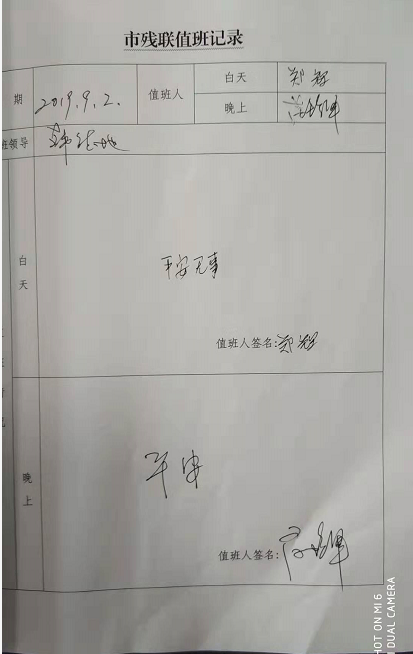 市残联值班记录
期 2019.9.2. 值班人 白天 郑
晚上
班领导 韩
白天
平安无事
值班人签名: 郑
晚上
平安
值班人签名:
SHOT ON MI 6
DUAL CAMERA